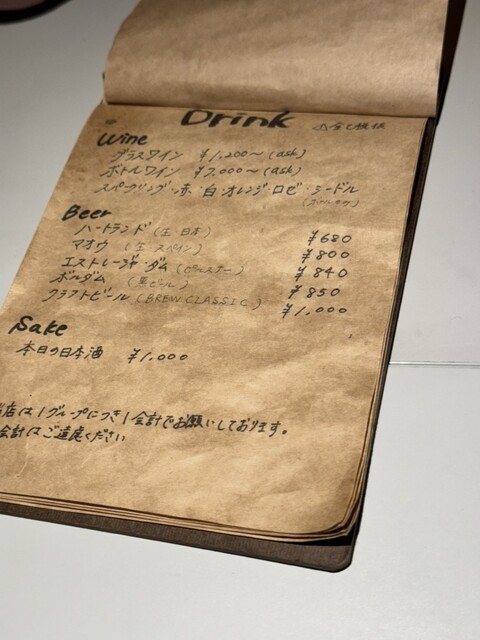 Drink
Wine
グラスワイン ¥1,200〜 (ask)
ボトルワイン ¥7,000〜 (ask)
スパークリング・赤・白・オレンジ・ロゼ・シードル
Beer
ハートランド (生 日本) ¥680
マオウ (生 スペイン) ¥800
エストレージャ・ダム (ピルスナー) ¥840
ボルダム (黒ビール) ¥850
クラフトビール (BREW CLASSIC) ¥1,000
Sake
本日の日本酒 ¥1,000
当店は1グループにつき1会計でお願いしております。
会計はご遠慮ください